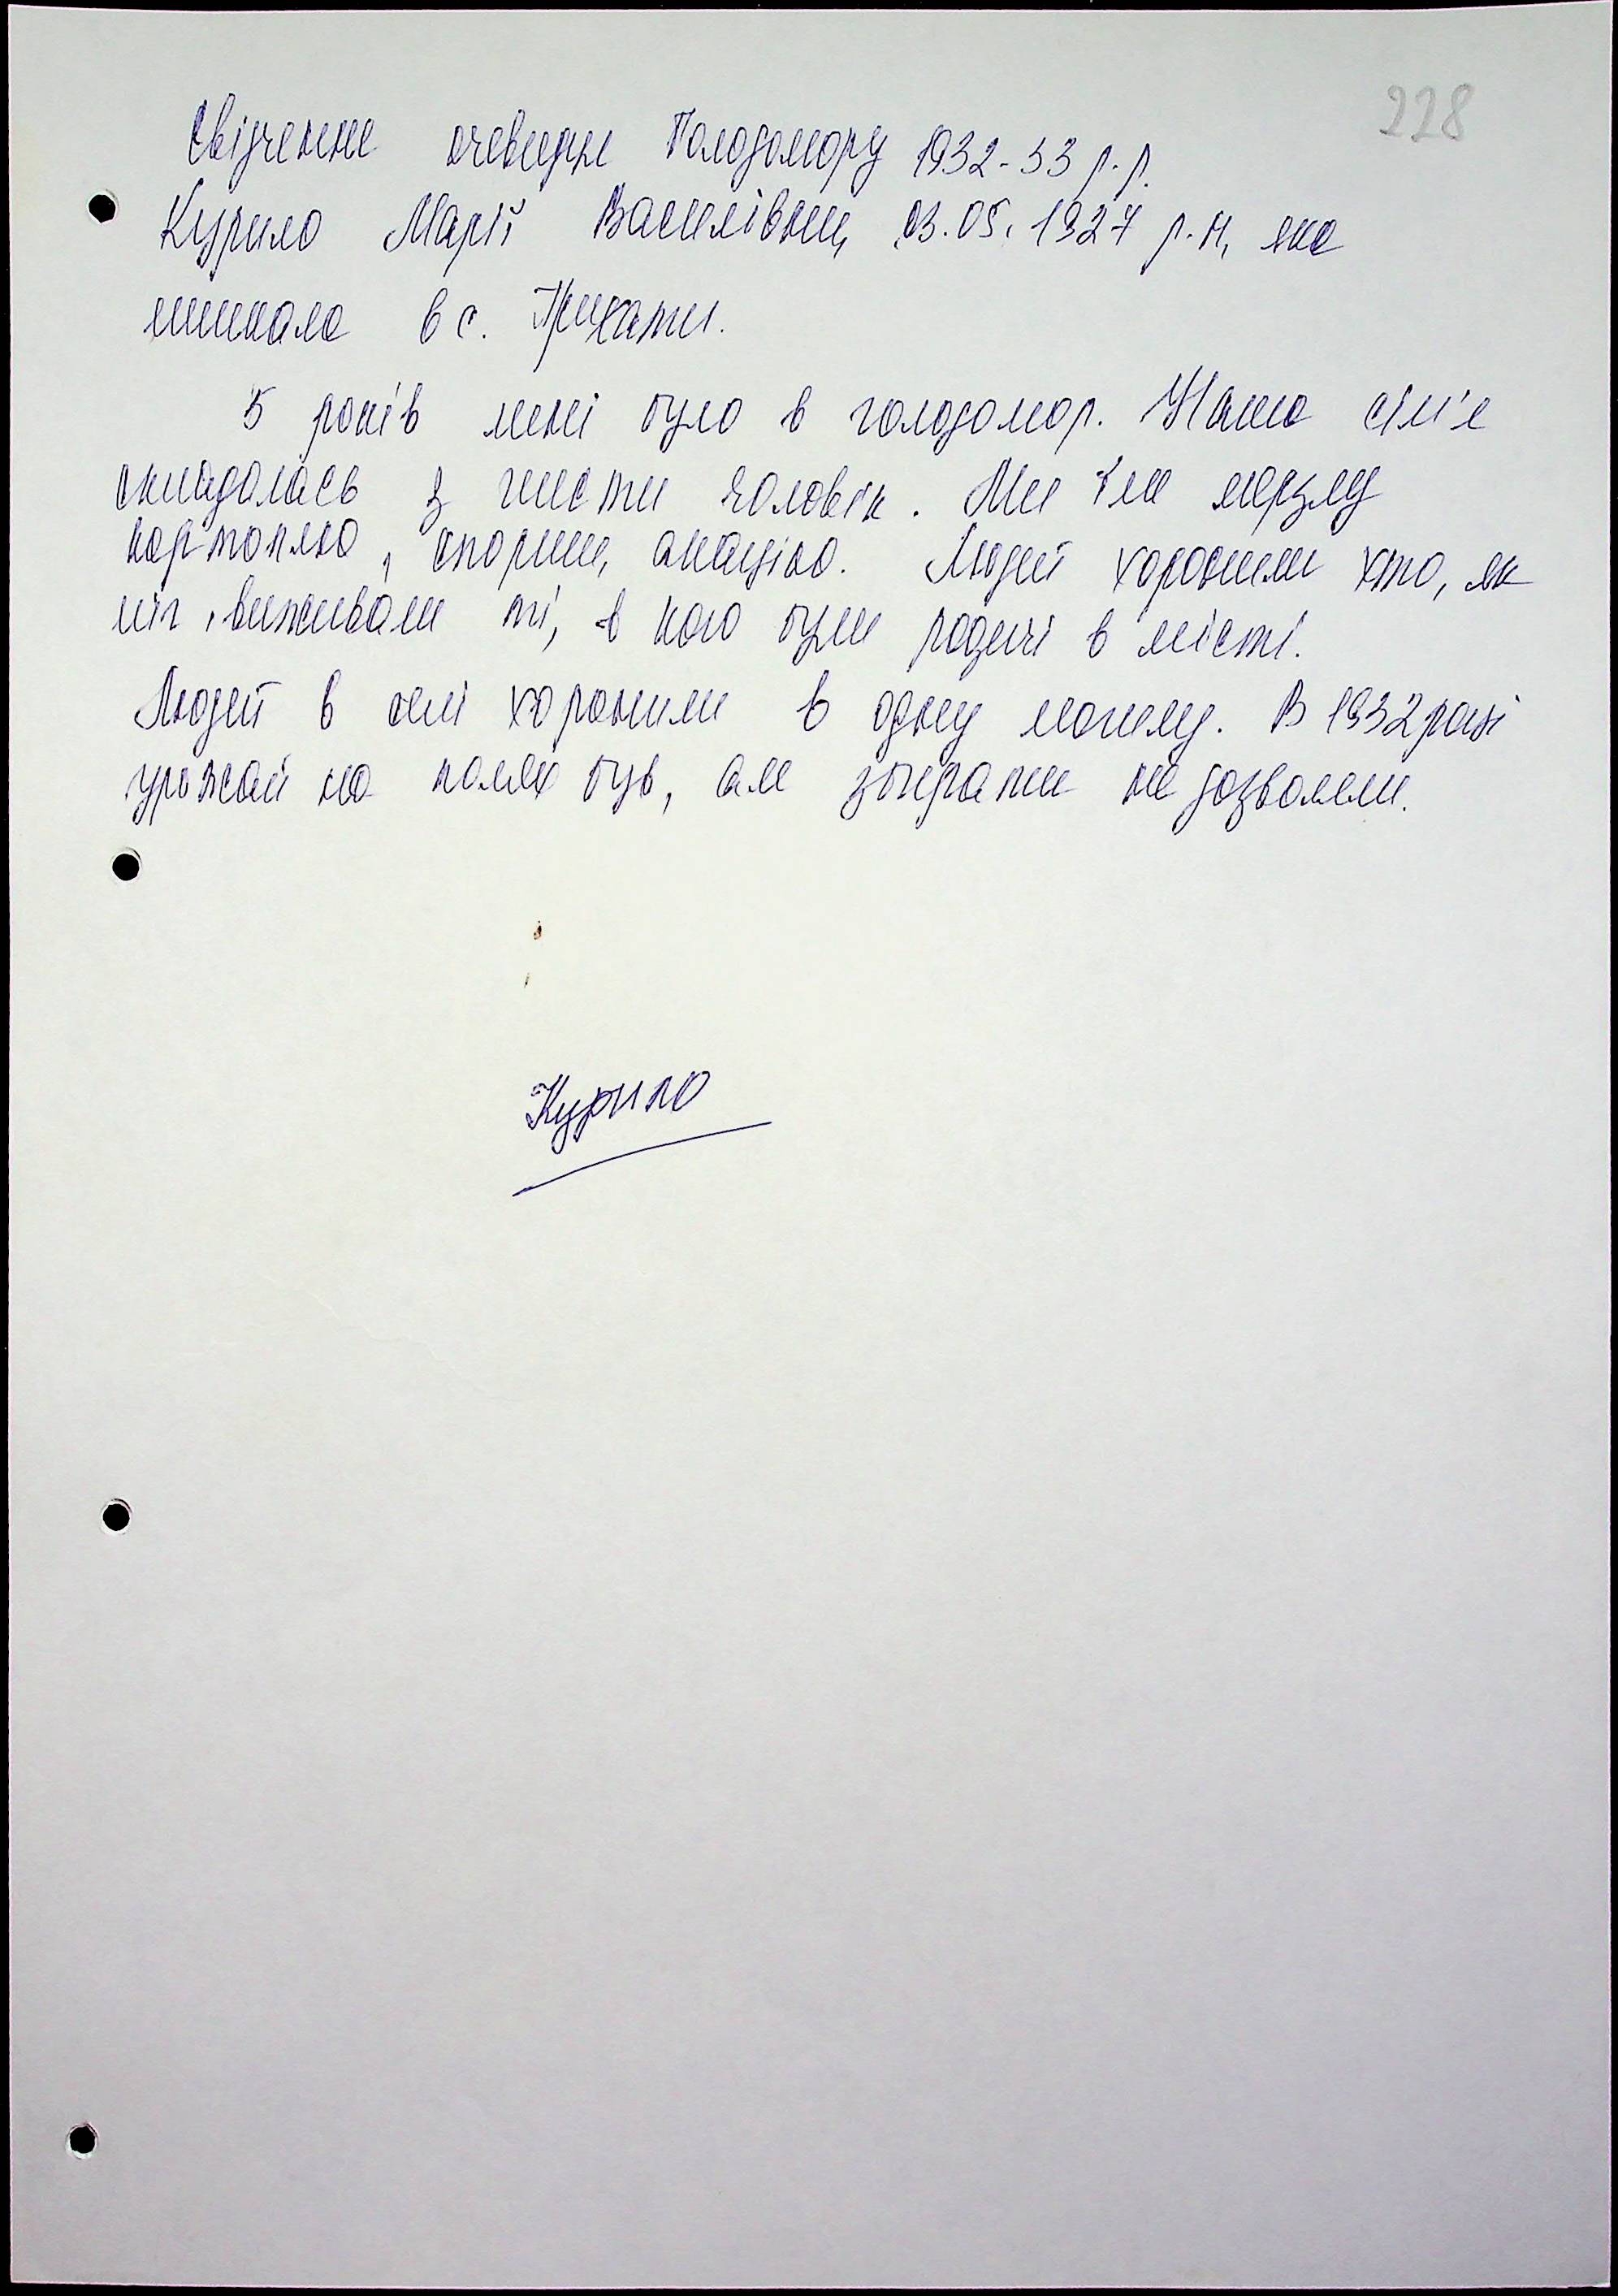 228
Свідчення очевидця Голодомору 1932-33 р.р.
Курило Марії Василівни, 03.05.1927 р.н, яка
мешкала в с. Трихати.
5 років мені було в голодомор. Наша сім'я
складалась з шести чоловік. Ми їли мерзлу
картоплю, спориш, акацію. Людей хоронили хто, як
міг, виживали ті, в кого були родичі в місті.
Людей в селі хоронили в одну могилу. В 1932 році
урожай на полях був, але збирати не дозволяли.
Курило